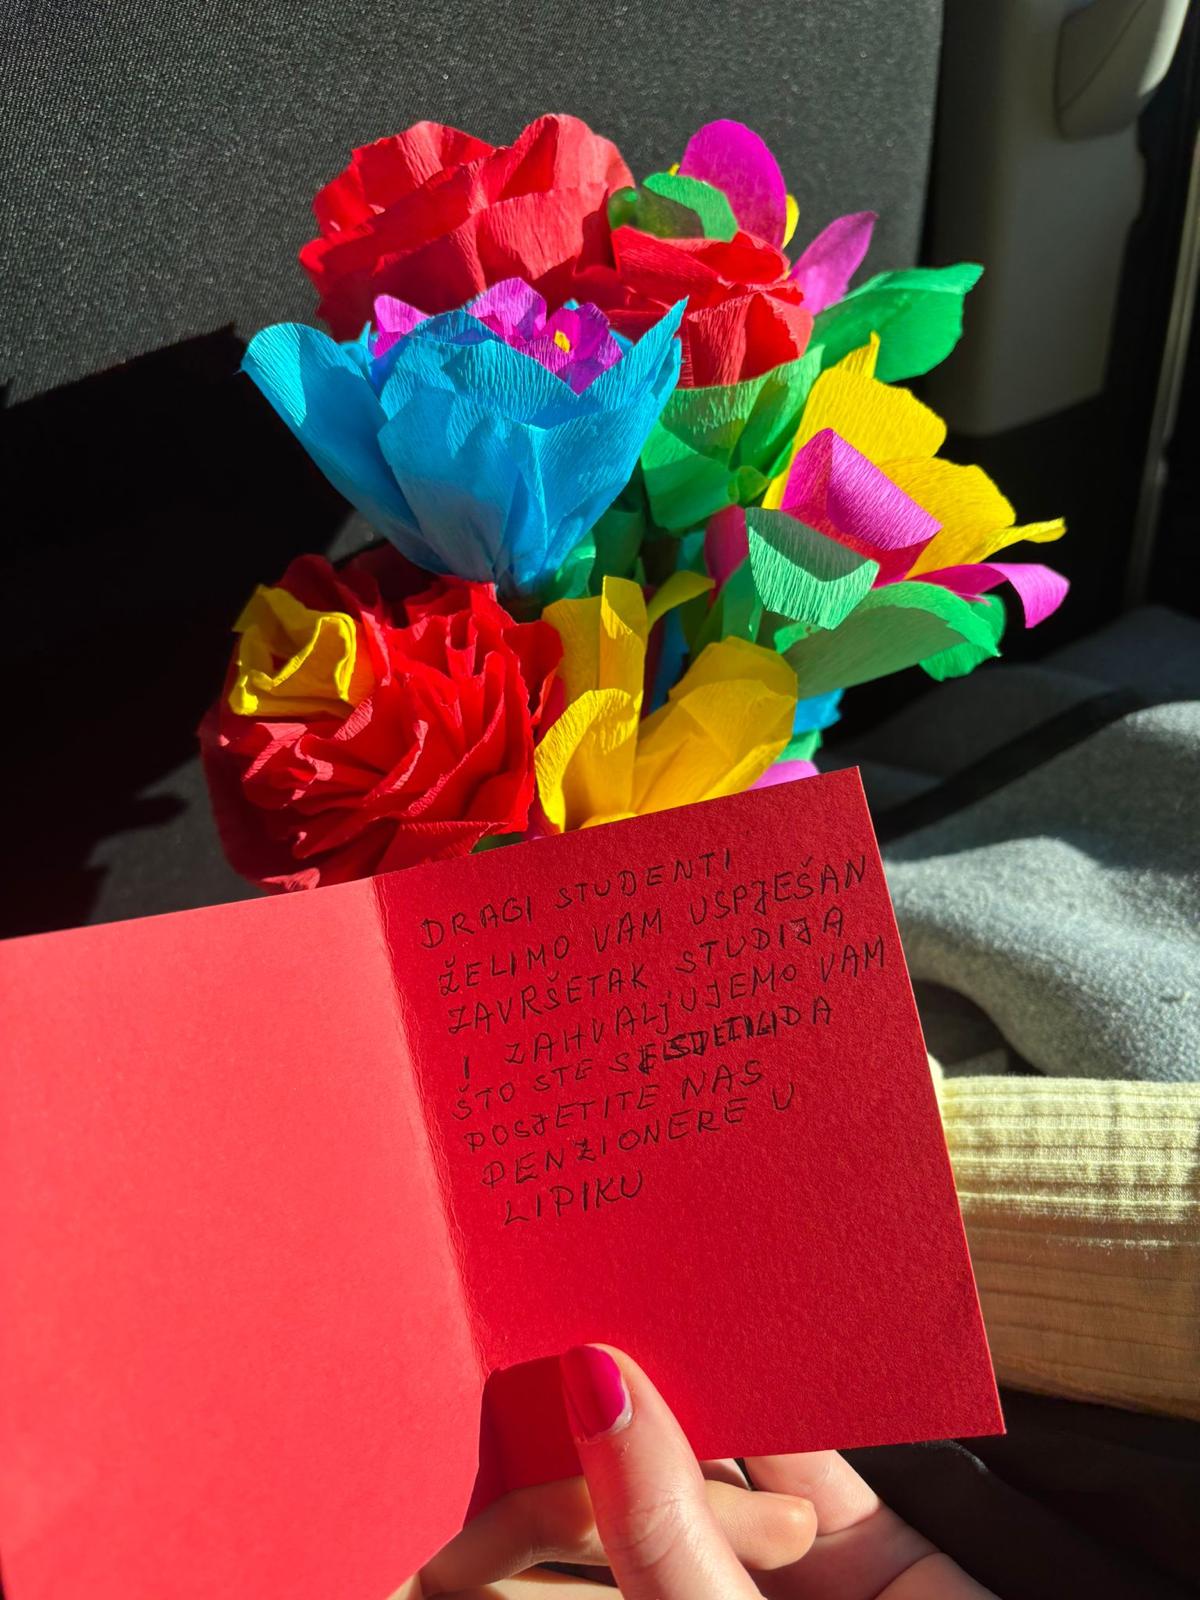 DRAGI STUDENTI
ŽELIMO VAM USPJEŠAN
ZAVRŠETAK STUDIJA
I ZAHVALJUJEMO VAM
ŠTO STE SE SJETILI DA
POSJETITE NAS
PENZIONERE U
LIPIKU